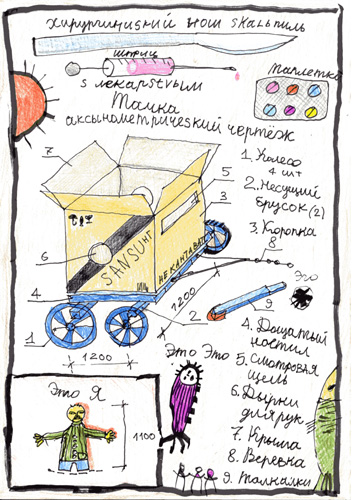 хирургический нож skaльпиль
шприц
s лекарstвым
таплетки
Тачка
аксынометрический чертёж
1. Колесо
4 шт
2. Несущий
брусок (2)
3 Коропка
7
5
3
6
4
1
2
8
9
SANSUнг
НЕ КАНТАВАТ
1200
1200
Это
4. Дощатый
настил
5. Смотровая
щель
6. Дырки
для рук
7. Крыша
8. Веревка
9. Толкалки
Это Это
Это Я
1100